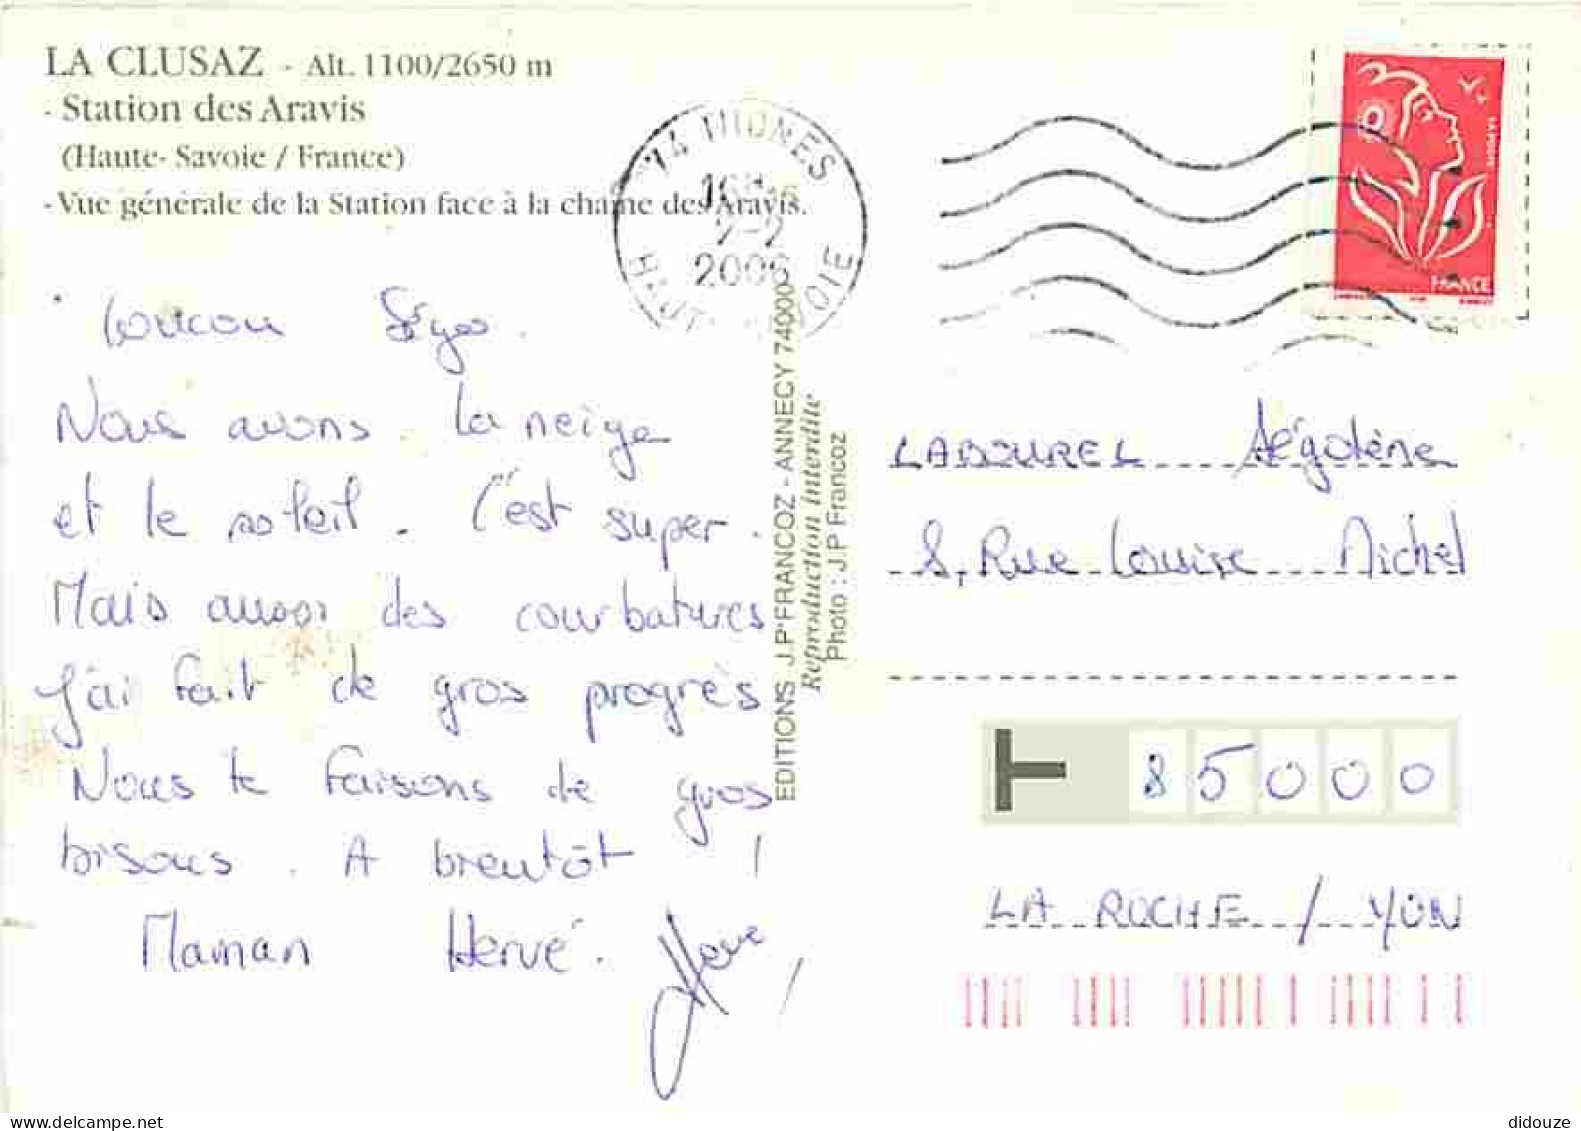 LA CLUSAZ - Alt. 1100/2650 m
- Station des Aravis
(Haute-Savoie / France)
- Vue générale de la Station face à la chaîne des Aravis.
74 THONES
16H
2-2
2006
HAUTE SAVOIE
FRANCE
Coucou Ségo.
Nous avons la neige
et le soleil. C'est super.
Mais aussi des courbatures
J'ai fait de gros progrès
Nous te faisons de gros
bisous. A bientôt !
Maman Hervé.
EDITIONS J.P FRANCOZ - ANNECY 74000
Reproduction interdite
Photo : J.P Francoz
LABOUREL Ségolène
8, Rue Louise Michel
85000
LA ROCHE / YON
didouze